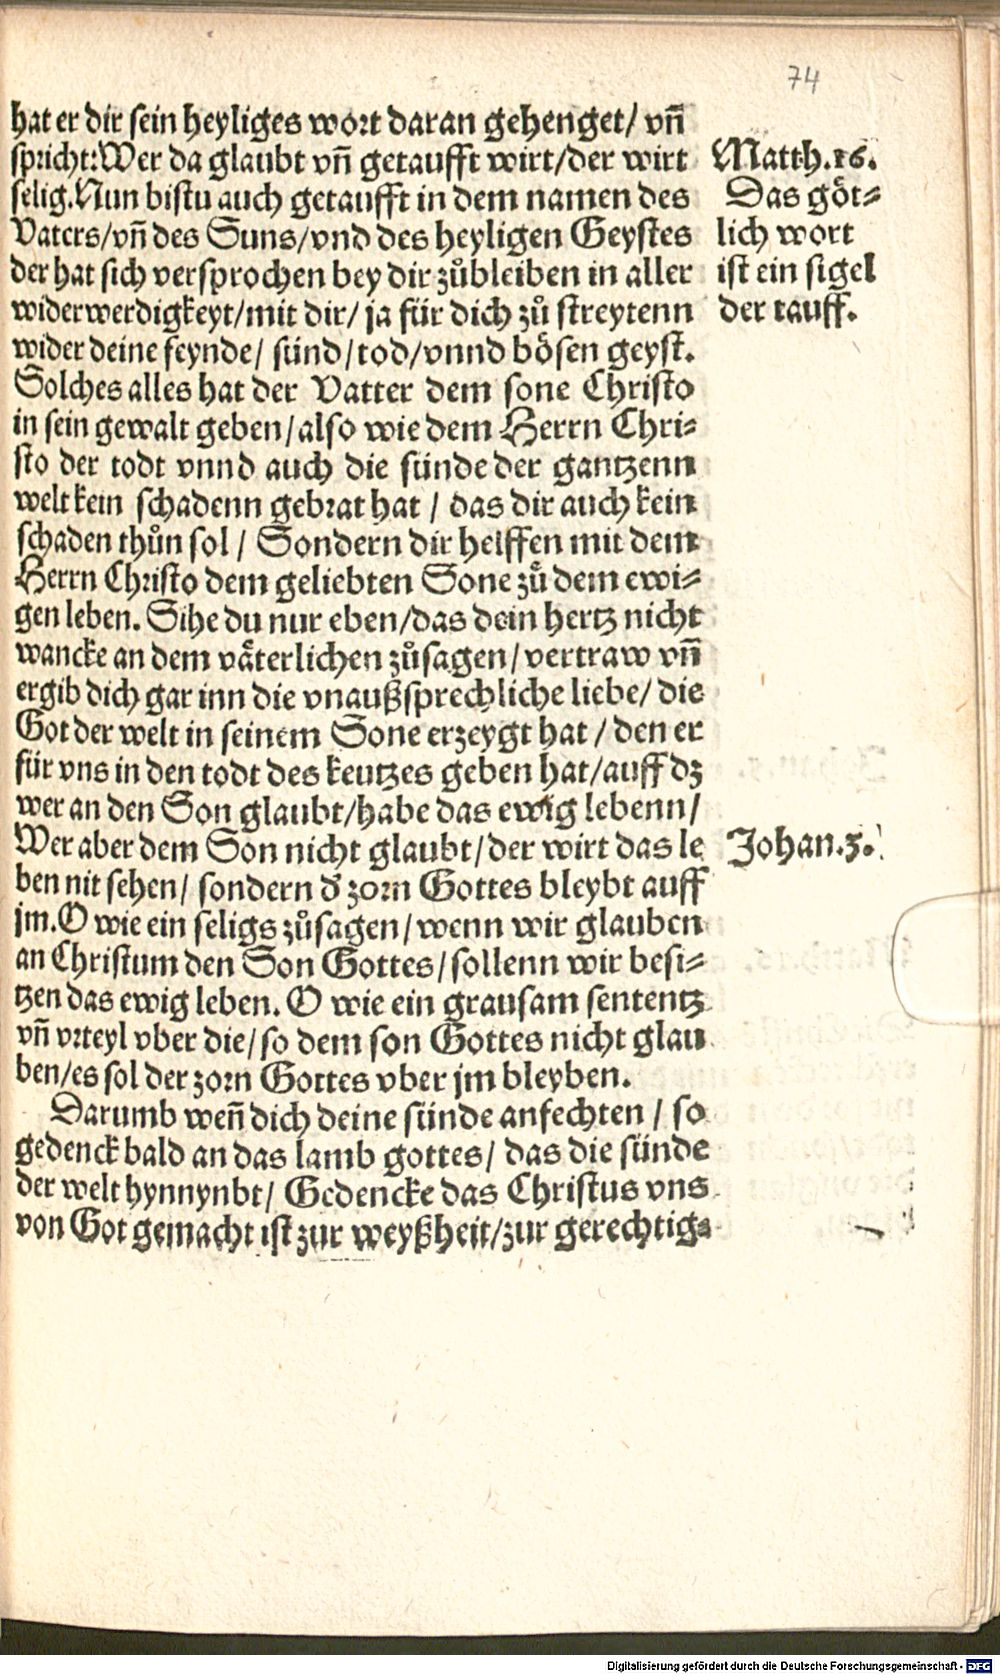 74
hat er dir sein heyliges wort daran gehenget/ vñ
spricht: Wer da glaubt vñ getaufft wirt/der wirt
selig. Nun bistu auch getaufft in dem namen des
Vaters/vñ des Suns/vnd des heyligen Geystes
der hat sich versprochen bey dir zůbleiben in aller
widerwerdigkeyt/mit dir/ ja für dich zů streytenn
wider deine feynde/ sünd/tod/vnnd bösen geyst.
Solches alles hat der Vatter dem sone Christo
in sein gewalt geben/also wie dem Herrn Chri⸗
sto der todt vnnd auch die sünde der gantzenn
welt kein schadenn gebrat hat / das dir auch kein
schaden thůn sol / Sondern dir helffen mit dem
Herrn Christo dem geliebten Sone zů dem ewi⸗
gen leben. Sihe du nur eben/das dein hertz nicht
wancke an dem väterlichen zůsagen/vertraw vñ
ergib dich gar inn die vnaußsprechliche liebe/ die
Got der welt in seinem Sone erzeygt hat / den er
für vns in den todt des keutzes geben hat/auff dz
wer an den Son glaubt/habe das ewig lebenn/
Wer aber dem Son nicht glaubt/der wirt das le
ben nit sehen/ sondern d' zorn Gottes bleybt auff
jm. O wie ein seligs zůsagen/wenn wir glauben
an Christum den Son Gottes/sollenn wir besi⸗
tzen das ewig leben. O wie ein grausam sententz
vñ vrteyl vber die/so dem son Gottes nicht glau
ben/es sol der zorn Gottes vber jm bleyben.
Darumb weñ dich deine sünde anfechten / so
gedenck bald an das lamb gottes/ das die sünde
der welt hynnynbt/ Gedencke das Christus vns
von Got gemacht ist zur weyßheit/zur gerechtig⸗
Matth.16.
Das göt⸗
lich wort
ist ein sigel
der tauff.
Johan.3.
Digitalisierung gefördert durch die Deutsche Forschungsgemeinschaft - DFG